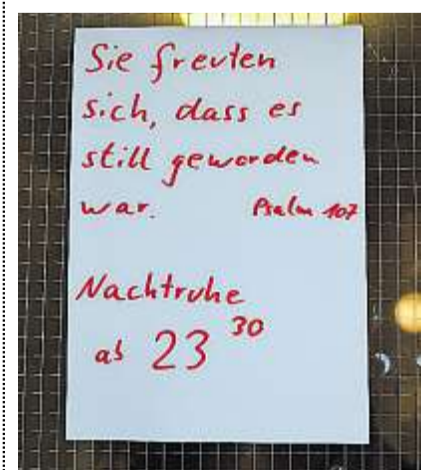 Sie freuten
sich, dass es
still geworden
war. Psalm 107
Nachtruhe
ab 23 30